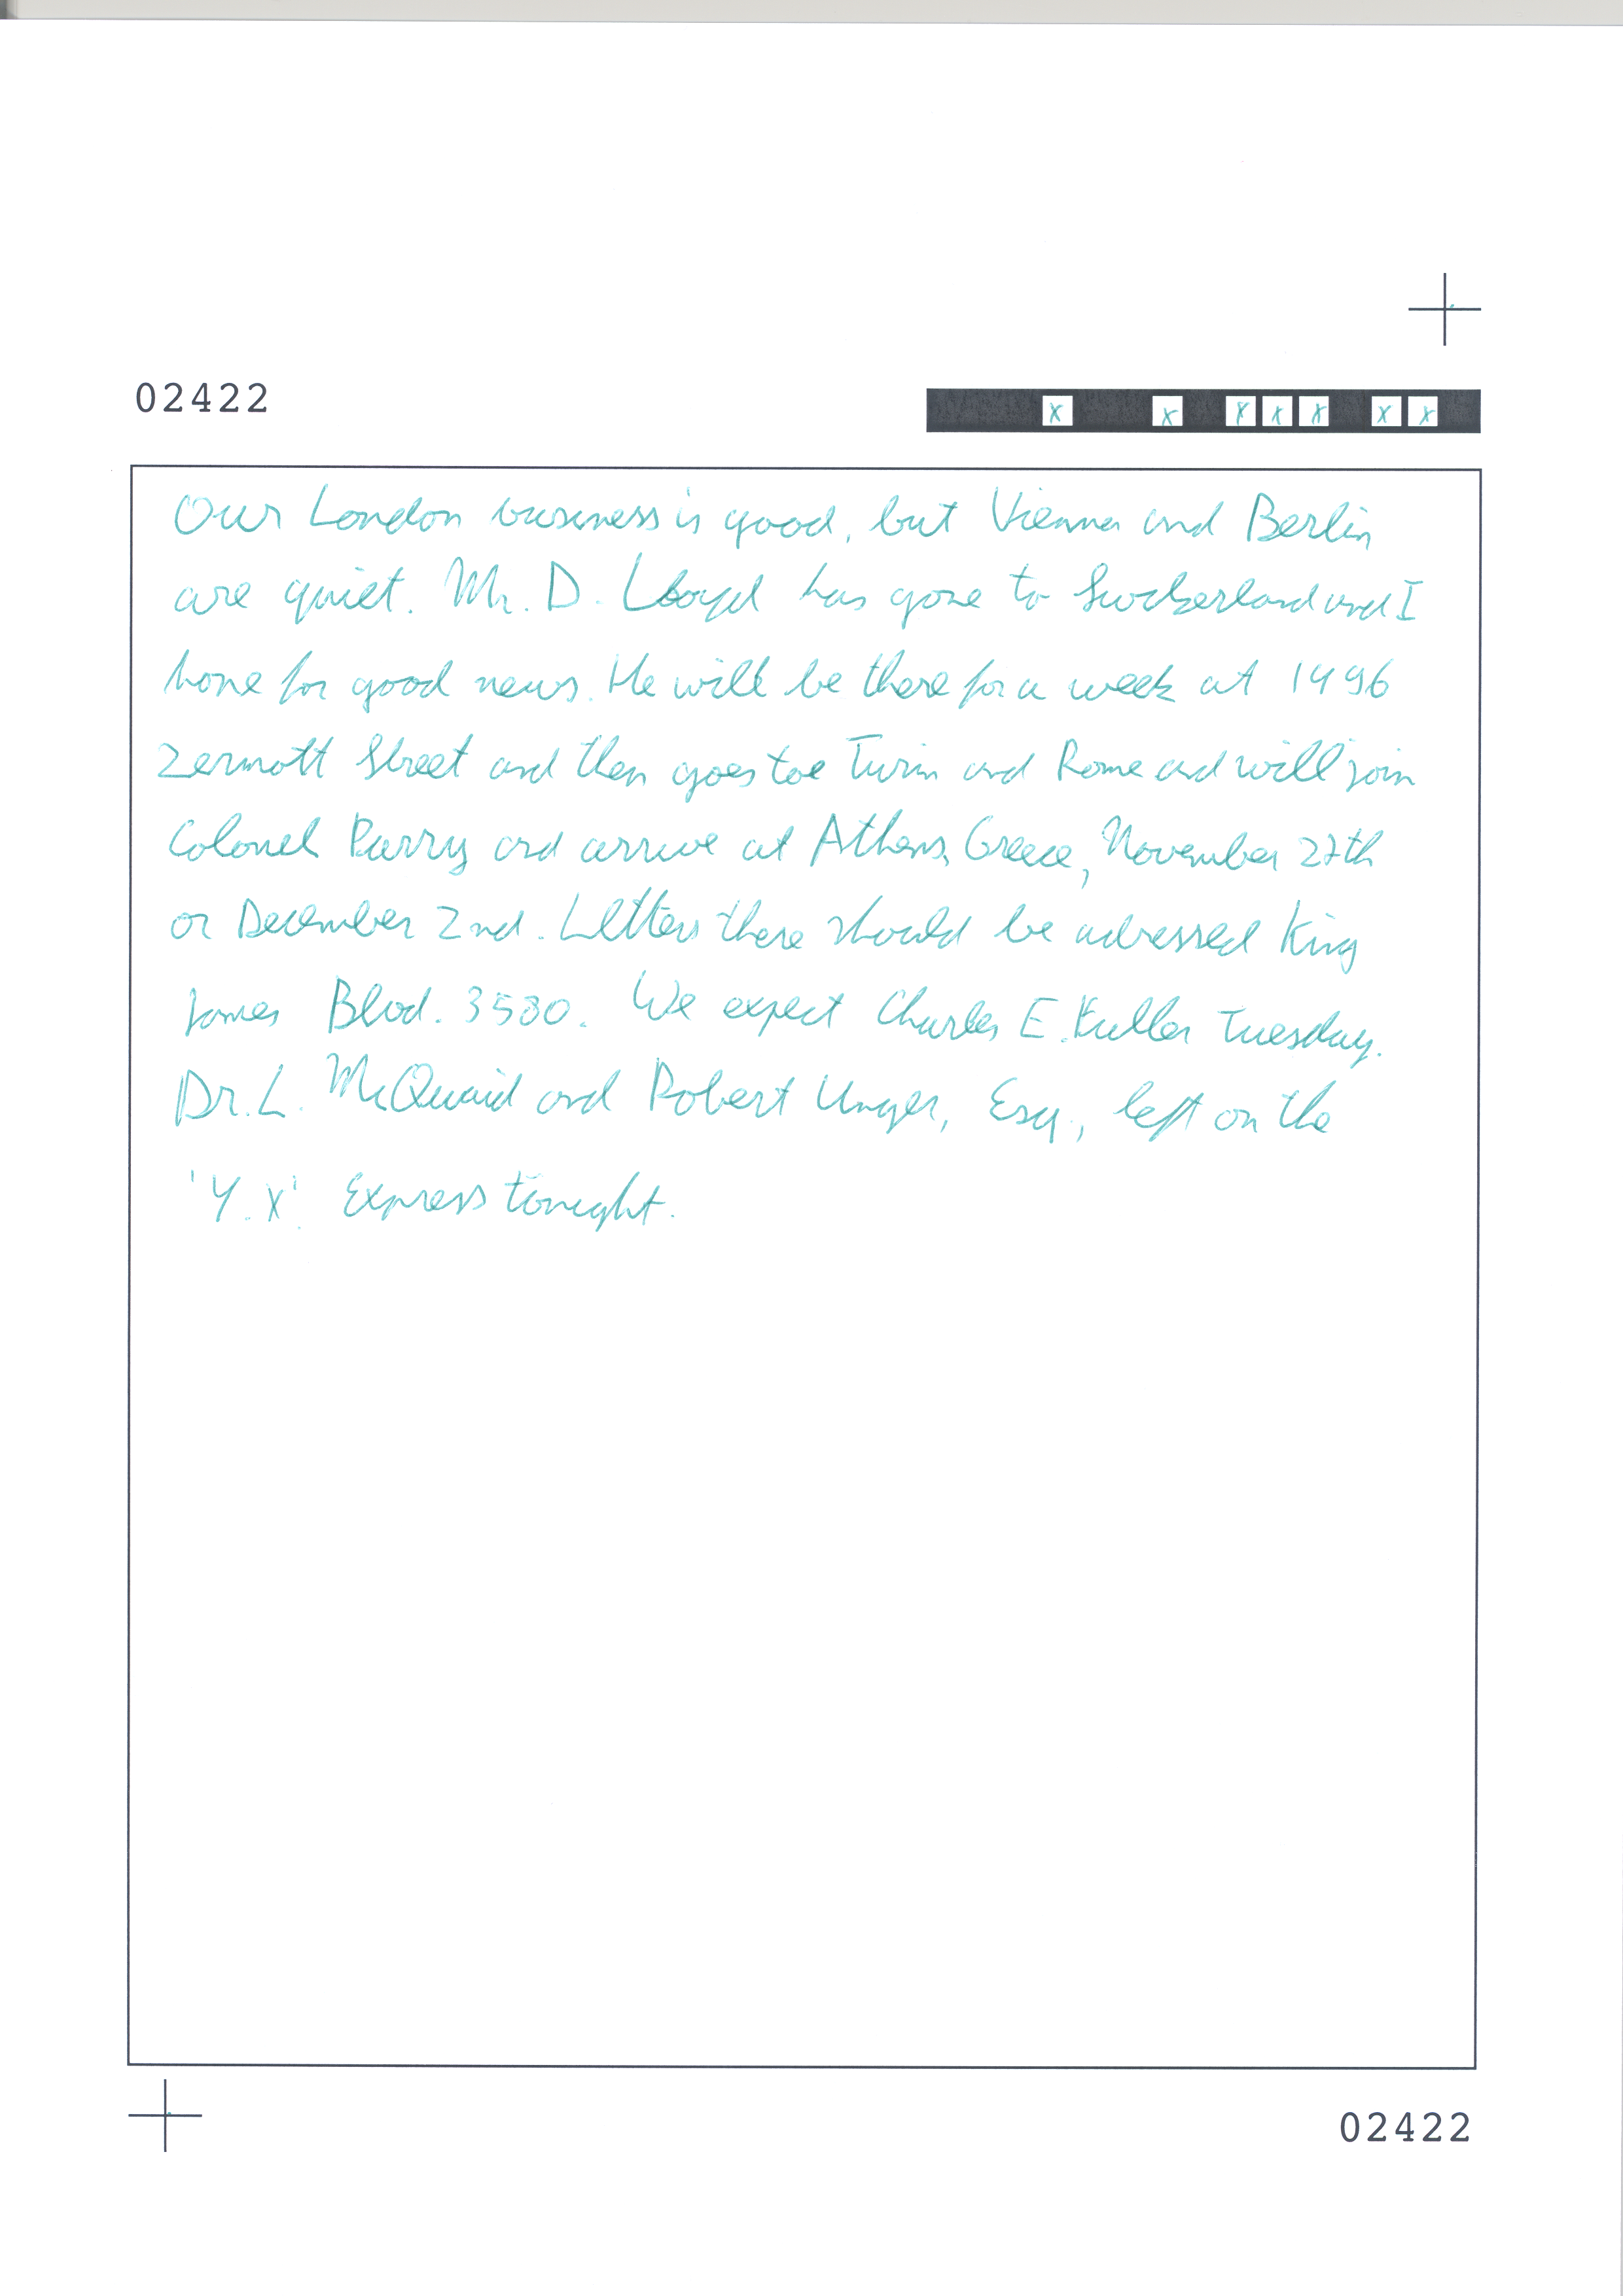 02422
Our London business is good, but Vienna and Berlin
are quiet. Mr. D. Lloyd has gone to Switzerland and I
hone for good news. He will be there for a week at 1496
Zermott Street and then goes toe Turin and Rome and will join
Colonel Parry and arrive at Athens, Greece, November 27th
or December 2nd. Letters there should be adressed King
James Blvd. 3580. We expect Charles E. Fuller Tuesday.
Dr. L. McQuaid and Robert Unger, Esq., left on the
'Y.X.' Express tonight.
02422